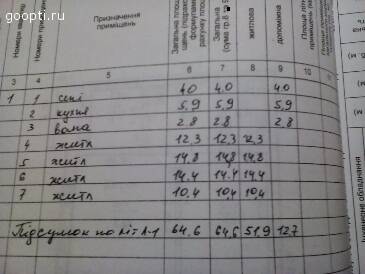 goopti.ru
Номери
Номери
Призначення
приміщень
Загальна площа
формулами
рахунку площі
Загальна
(сума гр.8
житлова
допоміжна
3 4 5 6 7 8 9 10 11
1 1 сені 4.0 4.0 4.0
2 кухня 5,9 5,9 5,9
3 вана 2.8 2.8 2,8
4 житл 12,3 12,3 12,3
5 житл 14,8 14,8 14,8
6 житл 14.4 14.4 14,4
7 житл 10,4 10,4 10,4
Підсумок по літ А-1 64,6 64,6 51,9 12,7